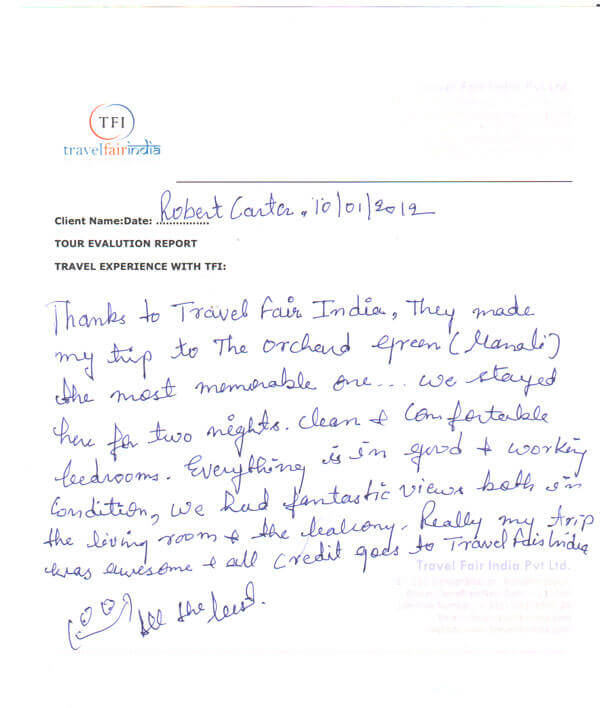 Travel Fair India Pvt Ltd.
TFI
travelfairindia
Client Name:Date: Robert Carter. 10/01/2012
TOUR EVALUTION REPORT
TRAVEL EXPERIENCE WITH TFI:
Thanks to Travel Fair India, They made
my trip to The Orchard Green (Manali)
the most memorable one... we stayed
here for two nights. Clean & Comfortable
bedrooms. Everything is in good & working
Condition, we had fantastic views both in
the living room & the balcony. Really my trip
was awesome & all credit goes to Travel Fair India
Travel Fair India Pvt Ltd.
All the best.